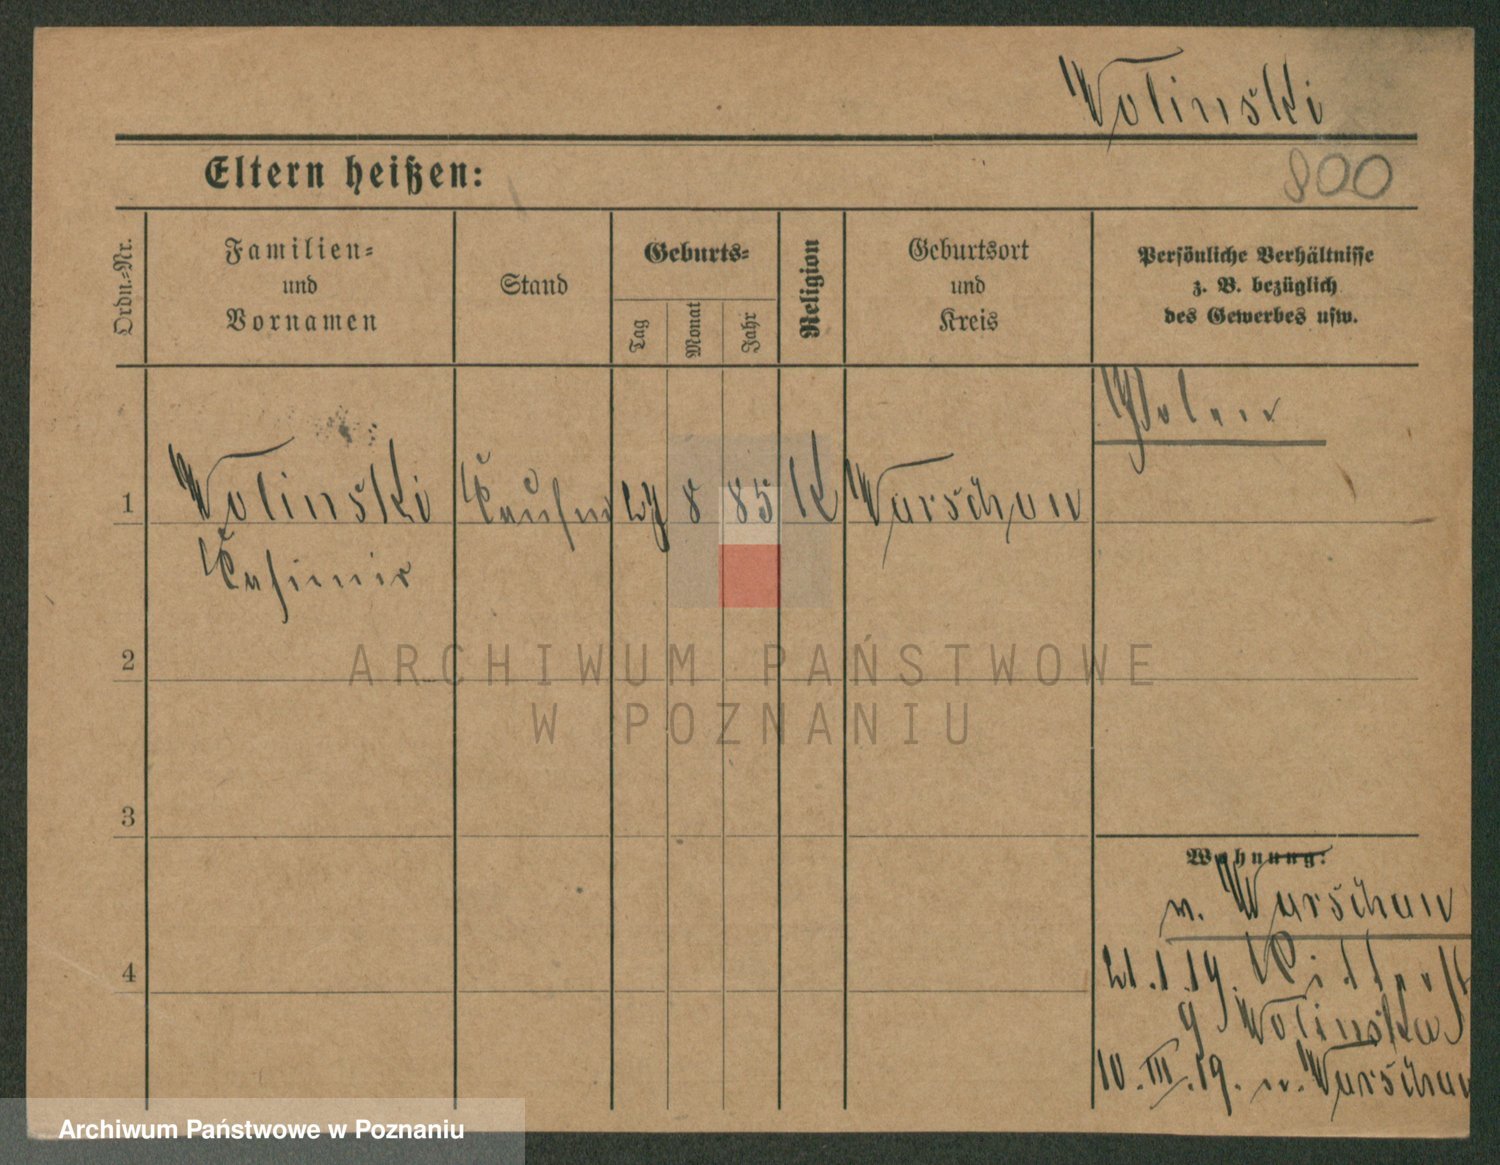 Wolinski
Eltern heißen:
800
Ordn.=Nr.
Familien=
und
Vornamen
Stand
Geburts=
Tag
Monat
Jahr
Religion
Geburtsort
und
Kreis
Persönliche Verhältnisse
z. B. bezüglich
des Gewerbes usw.
Polen
1
Wolinski
Kaufm
29
8
85
K
Warschau
Casimir
2
3
4
Wohnung:
n. Warschau
21.1.19.
9 Wolinska
10.III.19. n. Warschau
ARCHIWUM PAŃSTWOWE
W POZNANIU
Archiwum Państwowe w Poznaniu